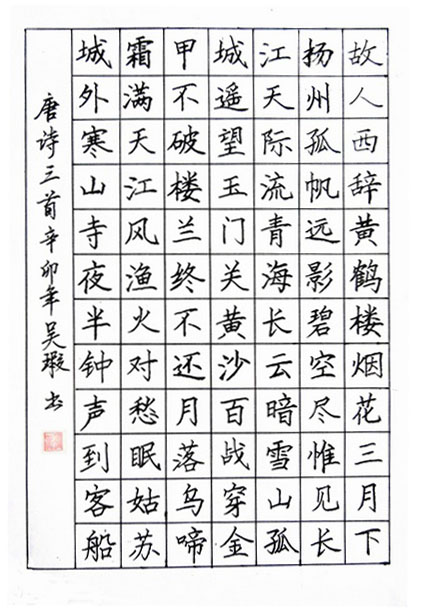 故人西辞黄鹤楼烟花三月下
扬州孤帆远影碧空尽惟见长
江天际流青海长云暗雪山孤
城遥望玉门关黄沙百战穿金
甲不破楼兰终不还月落乌啼
霜满天江风渔火对愁眠姑苏
城外寒山寺夜半钟声到客船
唐诗三首辛卯年吴瑕书